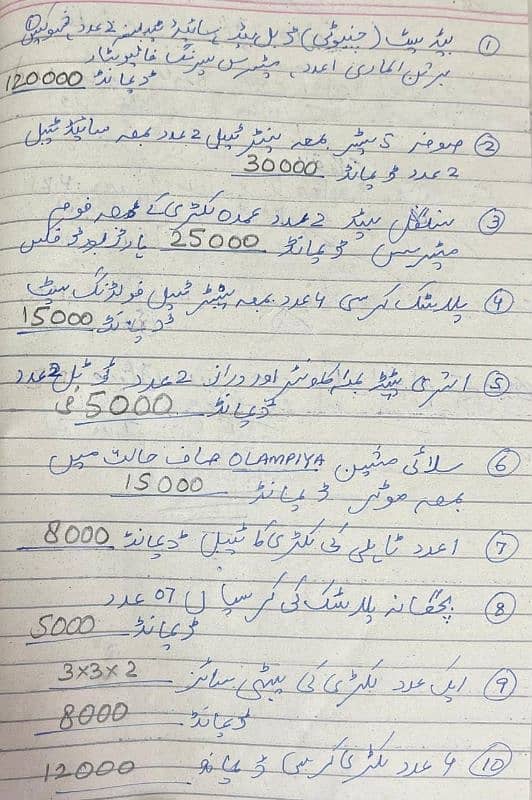 ① بیڈ سیٹ (چنیوٹی) ڈبل بیڈ سائیڈ ٹیبلیں 2 عدد
برتن الماری 1 عدد، میٹرس سپرنگ
ڈیمانڈ 120000
② صوفہ 5 سیٹر بمعہ سینٹر ٹیبل 2 عدد بمعہ سائیڈ ٹیبل
2 عدد ڈیمانڈ 30000
③ سنگل بیڈ 2 عدد عمدہ لکڑی کے بمعہ فوم
میٹریس ڈیمانڈ 25000 ہارڈ بورڈ فکس
④ پلاسٹک کرسی 4 عدد بمعہ سینٹر ٹیبل فولڈنگ سیٹ
ڈیمانڈ 15000
⑤ استری سٹینڈ اور دراز 2 عدد 2 عدد
ڈیمانڈ 5000 فی
⑥ سلائی مشین OLAMPIYA صاف حالت میں
بمعہ موٹر ڈیمانڈ 15000
⑦ 1 عدد ٹاہلی کی لکڑی کا ٹیبل ڈیمانڈ 8000
⑧ بچگانہ پلاسٹک کی کرسیاں 07 عدد
ڈیمانڈ 5000
⑨ ایک عدد لکڑی کی پیٹی سائز 3×3×2
ڈیمانڈ 8000
⑩ 4 عدد لکڑی کرسی ڈیمانڈ 12000